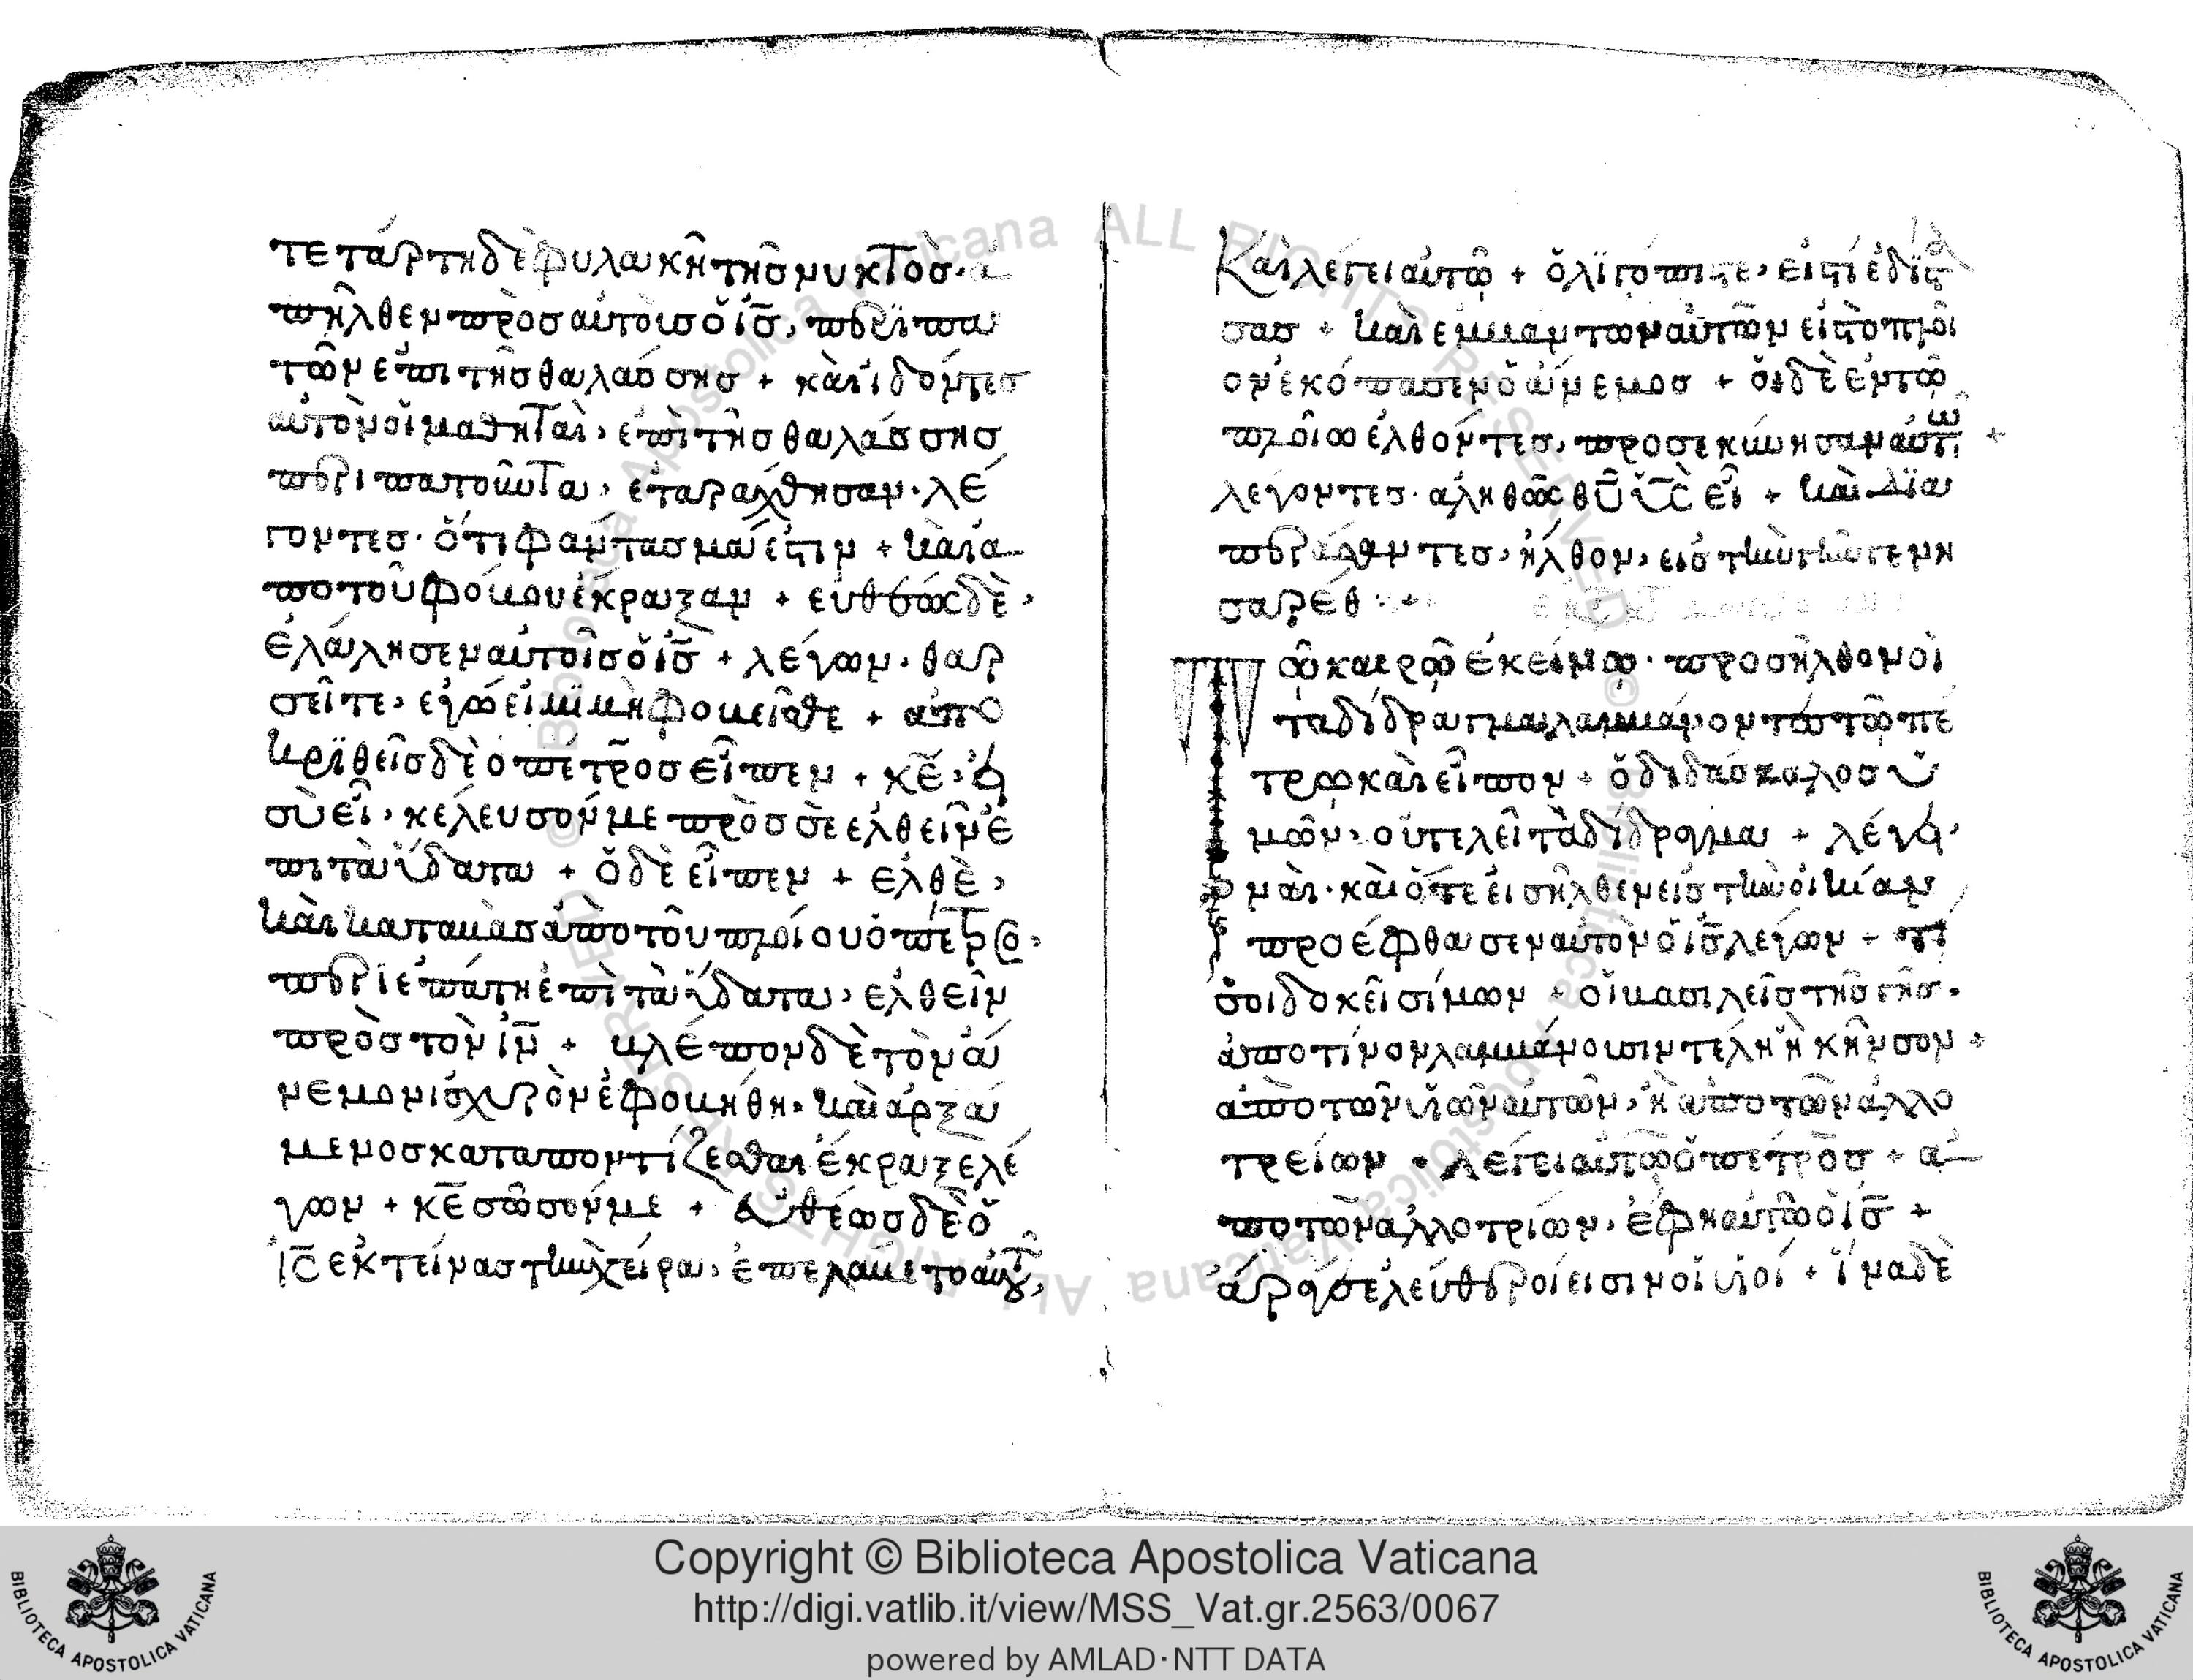 τετάρτη δὲ φυλακῆ τῆσ νυκτὸσ. ἀ
πῆλθεν πρὸσ αὐτοὺσ ὁ ις̅, περϊπα
τῶν ἐπι τῆσ θαλάσσησ + καὶ ἰδόντεσ
αὐτὸν οἱ μαθηταὶ, ἐπὶ τῆσ θαλάσσησ
περιπατοῦντα, ἐταράχθησαν. λέ
γοντεσ. ὅτι φάντασμα ἐστιν + καὶ ἀ
πο τοῦ φόβου ἔκραξαν + εὐθέωσ δὲ,
ἐλάλησεν αὐτοῖσ ὁ ις̅ + λέγων. θαρ
σεῖτε, ἐγώ εἰμϊ μὴ φοβεῖσθε + ἀπο
κρϊθεὶσ δὲ ο πέτροσ εἶπεν + κε̅, εἰ
σὺ εἶ, κέλευσόν με πρὸσ σὲ ἐλθεῖν ἐ
πι τὰ ὕδατα + ὁ δὲ εἶπεν + ἐλθὲ,
καὶ καταβὰσ ἀπὸ τοῦ πλοίου ὁ πέτρο,
περϊεπάτη ἐπὶ τὰ ὕδατα, ἐλθεῖν
πρὸσ τὸν ιν̅ + βλέπον δὲ τὸν ἄ
νεμον ἰσχυρὸν ἐφοβήθη. καὶ ἀρξά
μενοσ καταποντίζεσθαι ἔκραξε λέ
γων + κε̅ σῶσόν με + εὐθέωσ δὲ ὁ
ις̅ ἐκτείνασ τὴν χείρα, ἐπελάβετο αὐτοῦ,
Καὶ λέγει αὐτῶ + ὀλϊγόπιστε, εἰς τί ἐδίστα
σασ + καὶ εμβαντων αὐτῶν εἰσ το πλοῖ
ον ἐκόπασεν ὁ ἄνεμοσ + οἱ δὲ ἐν τῶ
πλοίω ἐλθόντεσ, προσεκύνησαν αὐτῶ +
λέγοντεσ. ἀληθῶς θυ̅ υς̅ εἶ + καὶ δϊα
περάσαντεσ, ἦλθον, εἰσ τὴν γῆν γενη
σαρέθ +
Τῶ καιρῶ ἐκείνω. προσῆλθον οἱ
τα δίδραγμα λαμβάνοντεσ τῶ πέ
τρω καὶ εἶπον + ὁ διδάσκαλοσ ὑ
μῶν, οὐ τελεῖ τὰ δίδραγμα + λέγει,
ναὶ. καὶ ὅτε εἰσῆλθεν εἰσ τὴν οἰκίαν
προέφθασεν αὐτὸν ὁ ις̅ λεγων + τί
σοι δοκεῖ σίμων + οἱ βασιλεῖσ τῆσ γῆσ.
ἀπο τίνον λαμβάνουσιν τέλη ἢ κῆνσον +
ἀπὸ τῶν υἱῶν αὐτῶν, ἢ ἀπο τῶν ἀλλο
τρείων + λέγει αὐτῶ ὁ πέτροσ + ἀ
πο τῶν αλλοτρίων, ἔφη αὐτῶ ὁ ις̅ +
ἄραγε ἐλεύθεροί εισιν οἱ υἱοί + ἵνα δὲ